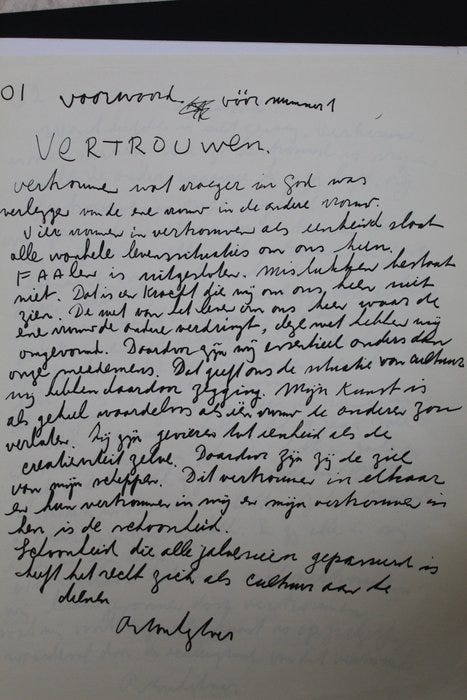 01 voorwoord vóór nummer 1
VERTROUWEN.
vertrouwen wat vroeger in God was
verleggen van de ene vrouw in de andere vrouw.
Vier vrouwen in vertrouwen als eenheid slaat
alle wankele levenssituaties om ons heen.
FAALen is uitgesloten. Mislukken bestaat
niet. Dat is een kracht die wij om ons heen niet
zien. De wet van het leven om ons heen waar de
ene vrouw de andere verdringt, deze wet hebben wij
omgevormd. Daardoor zijn wij essentieel anders dan
onze medemens. Dat geeft ons de situatie van cultuur
wij hebben daardoor zegging. Mijn Kunst is
als geheel waardeloos als één vrouw de anderen zou
verlaten. Zij zijn gevieren tot eenheid als de
creativiteit zelve. Daardoor zijn zij de ziel
van mijn scheppen. Dit vertrouwen in elkaar
en hun vertrouwen in mij en mijn vertrouwen in
hen is de schoonheid.
Schoonheid die alle jaloezieën gepasseerd is
heeft het recht zich als cultuur aan te
dienen